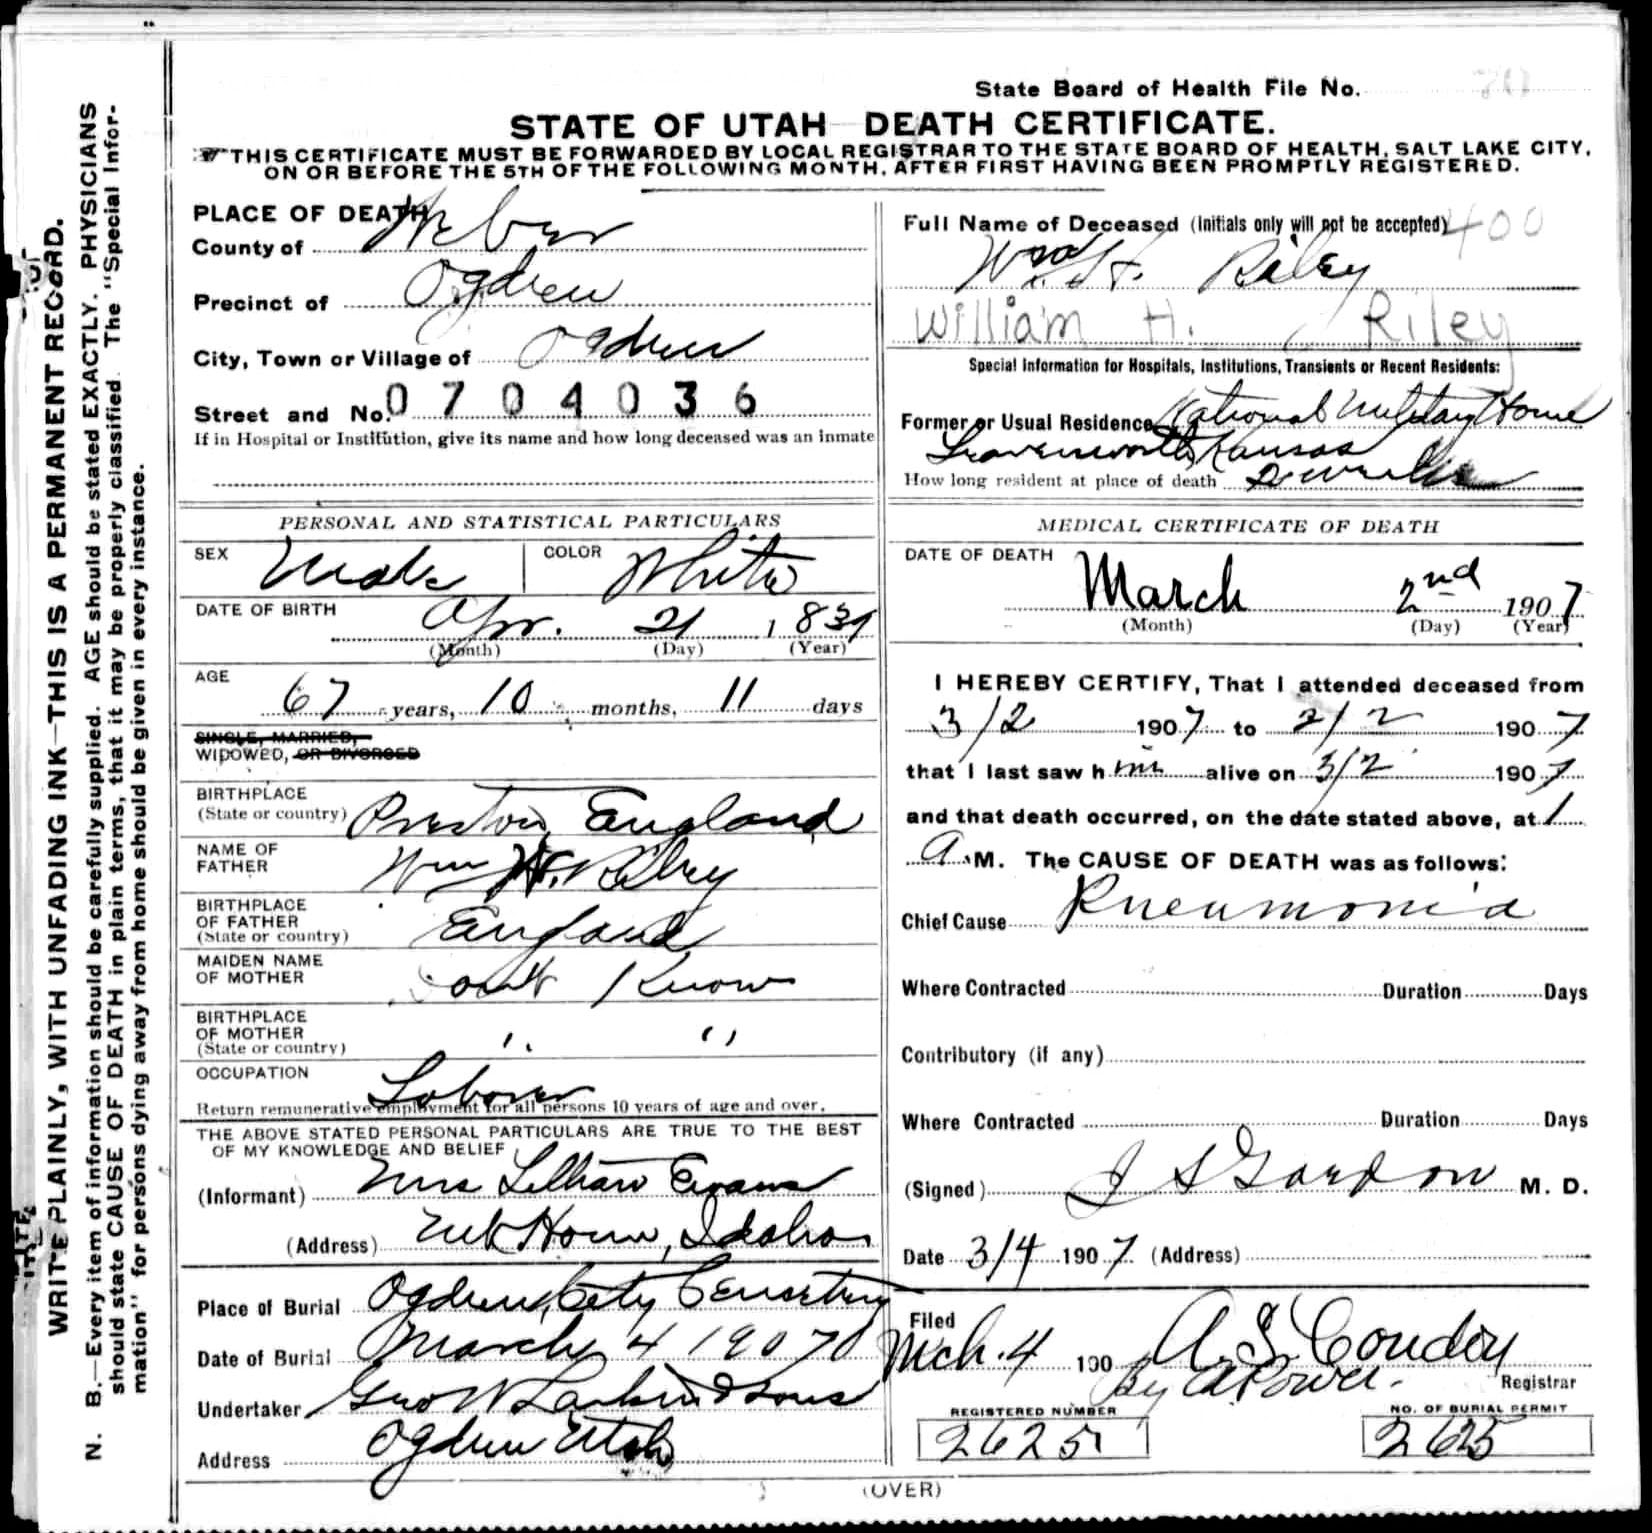 State Board of Health File No.
STATE OF UTAH DEATH CERTIFICATE.
THIS CERTIFICATE MUST BE FORWARDED BY LOCAL REGISTRAR TO THE STATE BOARD OF HEALTH, SALT LAKE CITY,
ON OR BEFORE THE 5TH OF THE FOLLOWING MONTH, AFTER FIRST HAVING BEEN PROMPTLY REGISTERED.
WRITE PLAINLY, WITH UNFADING INK—THIS IS A PERMANENT RECORD.
N. B.—Every item of information should be carefully supplied. AGE should be stated EXACTLY. PHYSICIANS
should state CAUSE OF DEATH in plain terms, that it may be properly classified. The "Special Infor-
mation" for persons dying away from home should be given in every instance.
PLACE OF DEATH
County of Weber
Precinct of Ogden
City, Town or Village of Ogden
Street and No. 0704036
If in Hospital or Institution, give its name and how long deceased was an inmate
PERSONAL AND STATISTICAL PARTICULARS
SEX Male COLOR White
DATE OF BIRTH Apr. 21, 1839
(Month) (Day) (Year)
AGE
67 years, 10 months, 11 days
SINGLE, MARRIED,
WIDOWED, OR DIVORCED
BIRTHPLACE
(State or country) Preston England
NAME OF
FATHER Wm H. Riley
BIRTHPLACE
OF FATHER England
(State or country)
MAIDEN NAME
OF MOTHER Don't Know
BIRTHPLACE
OF MOTHER " "
(State or country)
OCCUPATION Laborer
Return remunerative employment for all persons 10 years of age and over.
THE ABOVE STATED PERSONAL PARTICULARS ARE TRUE TO THE BEST
OF MY KNOWLEDGE AND BELIEF
(Informant) Mrs Lillian Evans
(Address) Idaho
Place of Burial Ogden City Cemetery
Date of Burial March 4 1907
Undertaker Geo W Larkin & Sons
Address Ogden Utah
Full Name of Deceased (Initials only will not be accepted) 400
Wm H. Riley
William H. Riley
Special Information for Hospitals, Institutions, Transients or Recent Residents:
Former or Usual Residence National Military Home
Leavenworth Kansas
How long resident at place of death 2 weeks
MEDICAL CERTIFICATE OF DEATH
DATE OF DEATH
March 2nd 1907
(Month) (Day) (Year)
I HEREBY CERTIFY, That I attended deceased from
3/2 1907 to 2/2 1907
that I last saw him alive on 3/2 1907
and that death occurred, on the date stated above, at 1
A M. The CAUSE OF DEATH was as follows:
Chief Cause Pneumonia
Where Contracted Duration Days
Contributory (if any)
Where Contracted Duration Days
(Signed) J S Gordon M. D.
Date 3/4 1907 (Address)
Filed
Mch. 4 190 A. S. Condon
By Registrar
REGISTERED NUMBER NO. OF BURIAL PERMIT
2625 2625
(OVER)